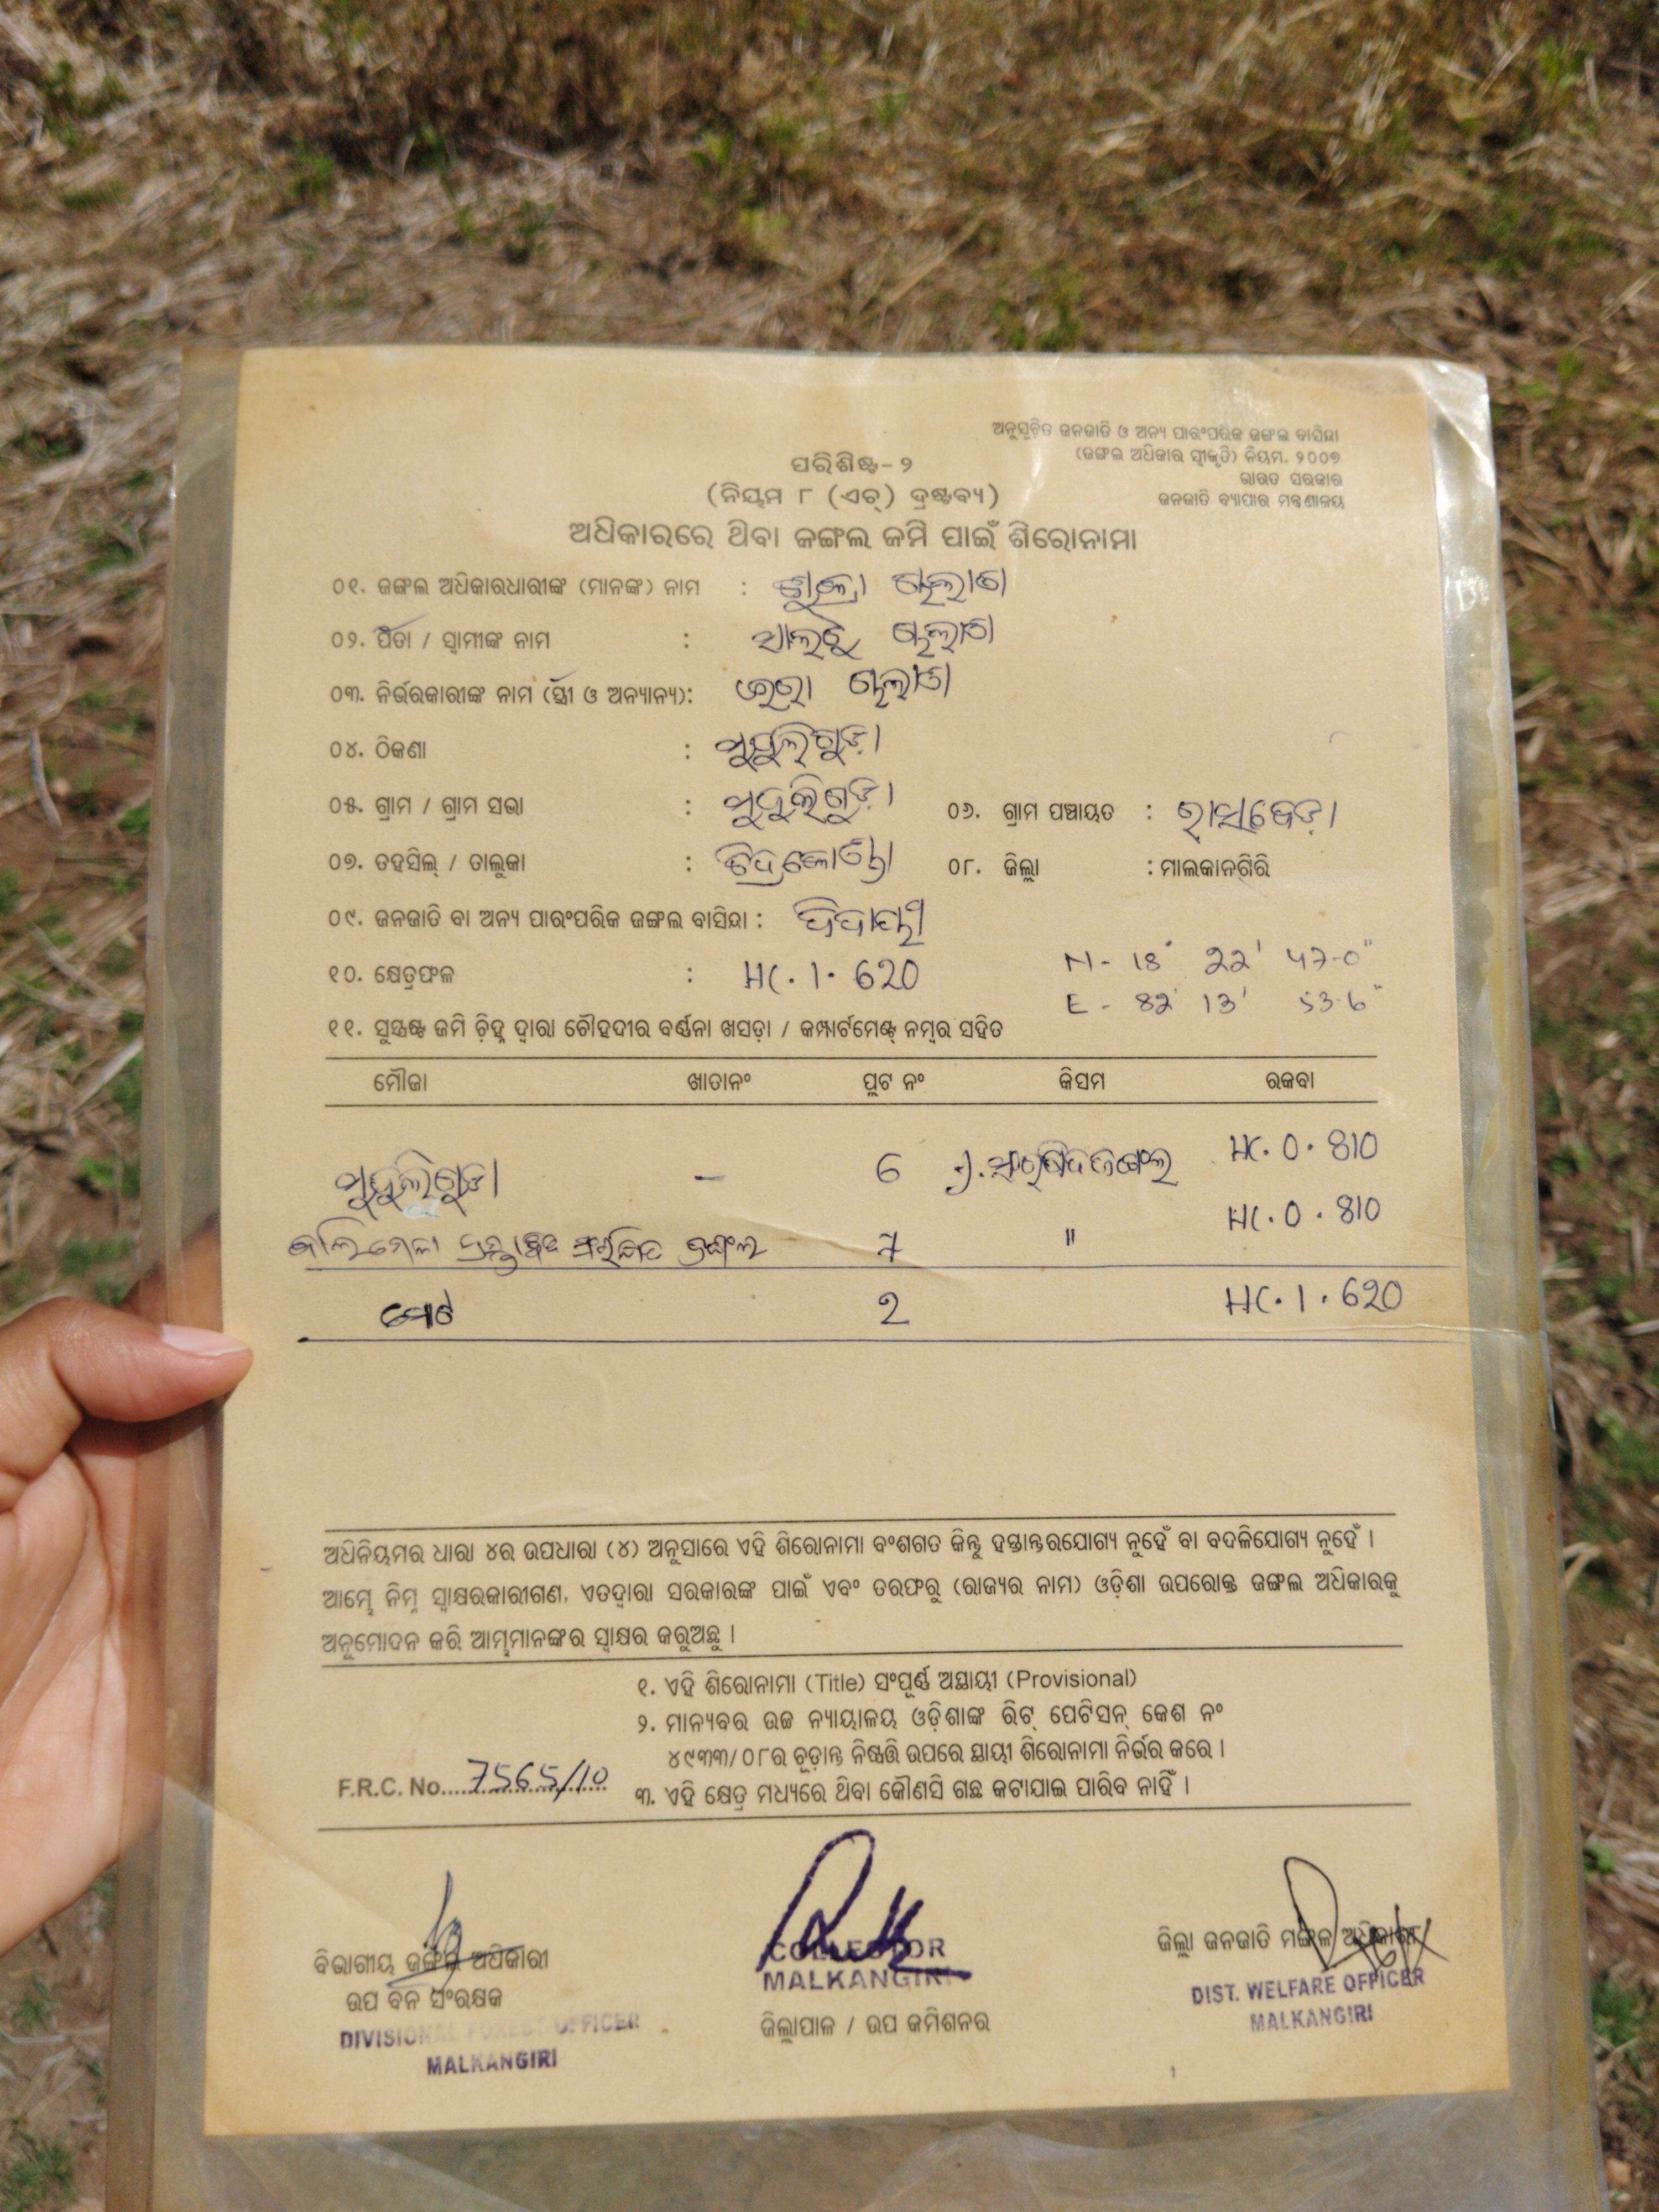 ଅନୁସୂଚିତ ଜନଜାତି ଓ ଅନ୍ୟ ପାରଂପରିକ ଜଙ୍ଗଲ ବାସିନ୍ଦା
(ଜଙ୍ଗଲ ଅଧିକାର ସ୍ୱୀକୃତି) ନିୟମ, ୨୦୦୭
ଭାରତ ସରକାର
ଜନଜାତି ବ୍ୟାପାର ମନ୍ତ୍ରଣାଳୟ
ପରିଶିଷ୍ଟ-୨
(ନିୟମ ୮ (ଏଚ୍) ଦ୍ରଷ୍ଟବ୍ୟ)
ଅଧିକାରରେ ଥିବା ଜଙ୍ଗଲ ଜମି ପାଇଁ ଶିରୋନାମା
୦୧. ଜଙ୍ଗଲ ଅଧିକାରଧାରୀଙ୍କ (ମାନଙ୍କ) ନାମ :
୦୨. ପିତା / ସ୍ୱାମୀଙ୍କ ନାମ :
୦୩. ନିର୍ଭରକାରୀଙ୍କ ନାମ (ସ୍ତ୍ରୀ ଓ ଅନ୍ୟାନ୍ୟ):
୦୪. ଠିକଣା :
୦୫. ଗ୍ରାମ / ଗ୍ରାମ ସଭା : ୦୬. ଗ୍ରାମ ପଞ୍ଚାୟତ : ରାସବେଡ଼ା
୦୭. ତହସିଲ୍ / ତାଲୁକା : ୦୮. ଜିଲ୍ଲା : ମାଲକାନଗିରି
୦୯. ଜନଜାତି ବା ଅନ୍ୟ ପାରଂପରିକ ଜଙ୍ଗଲ ବାସିନ୍ଦା : ଦିଦାୟୀ
୧୦. କ୍ଷେତ୍ରଫଳ : HC. 1. 620 N - 18° 22' 47.0"
E - 82° 13' 53.6"
୧୧. ସୁସ୍ପଷ୍ଟ ଜମି ଚ଼ିହ୍ନ ଦ୍ୱାରା ଚୌହଦୀର ବର୍ଣ୍ଣନା ଖସଡ଼ା / କମ୍ପାର୍ଟମେଣ୍ଟ୍ ନମ୍ବର ସହିତ
ମୌଜା ଖାତାନଂ ପ୍ଲଟ ନଂ କିସମ ରକବା
- 6 HC. 0. 810
ବାଲିମେଳା ଜଙ୍ଗଲ 7 " HC. 0. 810
ମୋଟ 2 HC. 1. 620
ଅଧିନିୟମର ଧାରା ୪ର ଉପଧାରା (୪) ଅନୁସାରେ ଏହି ଶିରୋନାମା ବଂଶଗତ କିନ୍ତୁ ହସ୍ତାନ୍ତରଯୋଗ୍ୟ ନୁହେଁ ବା ବଦଳିଯୋଗ୍ୟ ନୁହେଁ ।
ଆମ୍ଭେ ନିମ୍ନ ସ୍ୱାକ୍ଷରକାରୀଗଣ, ଏତଦ୍ୱାରା ସରକାରଙ୍କ ପାଇଁ ଏବଂ ତରଫରୁ (ରାଜ୍ୟର ନାମ) ଓଡ଼ିଶା ଉପରୋକ୍ତ ଜଙ୍ଗଲ ଅଧିକାରକୁ
ଅନୁମୋଦନ କରି ଆମ୍ଭମାନଙ୍କର ସ୍ୱାକ୍ଷର କରୁଅଛୁ ।
୧. ଏହି ଶିରୋନାମା (Title) ସଂପୂର୍ଣ୍ଣ ଅସ୍ଥାୟୀ (Provisional)
୨. ମାନ୍ୟବର ଉଚ୍ଚ ନ୍ୟାୟାଳୟ ଓଡ଼ିଶାଙ୍କ ରିଟ୍ ପେଟିସନ୍ କେଶ ନଂ
୪୯୩୩/୦୮ର ଚୂଡ଼ାନ୍ତ ନିଷ୍ପତ୍ତି ଉପରେ ସ୍ଥାୟୀ ଶିରୋନାମା ନିର୍ଭର କରେ ।
F.R.C. No. 7565/10
୩. ଏହି କ୍ଷେତ୍ର ମଧ୍ୟରେ ଥିବା କୌଣସି ଗଛ କଟାଯାଇ ପାରିବ ନାହିଁ ।
ବିଭାଗୀୟ ଜଙ୍ଗଲ ଅଧିକାରୀ
ଉପ ବନ ସଂରକ୍ଷକ
DIVISIONAL FOREST OFFICER
MALKANGIRI
COLLECTOR
MALKANGIRI
ଜିଲ୍ଲାପାଳ / ଉପ କମିଶନର
ଜିଲ୍ଲା ଜନଜାତି ମଙ୍ଗଳ ଅଧିକାରୀ
DIST. WELFARE OFFICER
MALKANGIRI